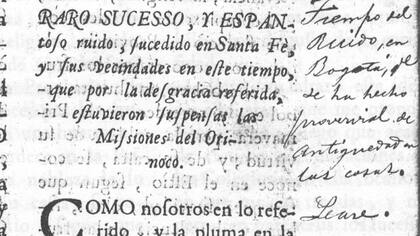 RARO SUCESSO, Y ESPAN-
toso ruido, sucedido en Santa Fè,
y sus vecindades en este tiempo,
que por la desgracia referida,
estuvieron suspensas las
Missiones del Ori-
noco.
COMO nosotros en lo refe-
rido, y la pluma en la
Tiempo del
Ruido, en
Bogotá, q.e
se ha hecho
proverbial de
antiguedad en
las cosas.
Leare.